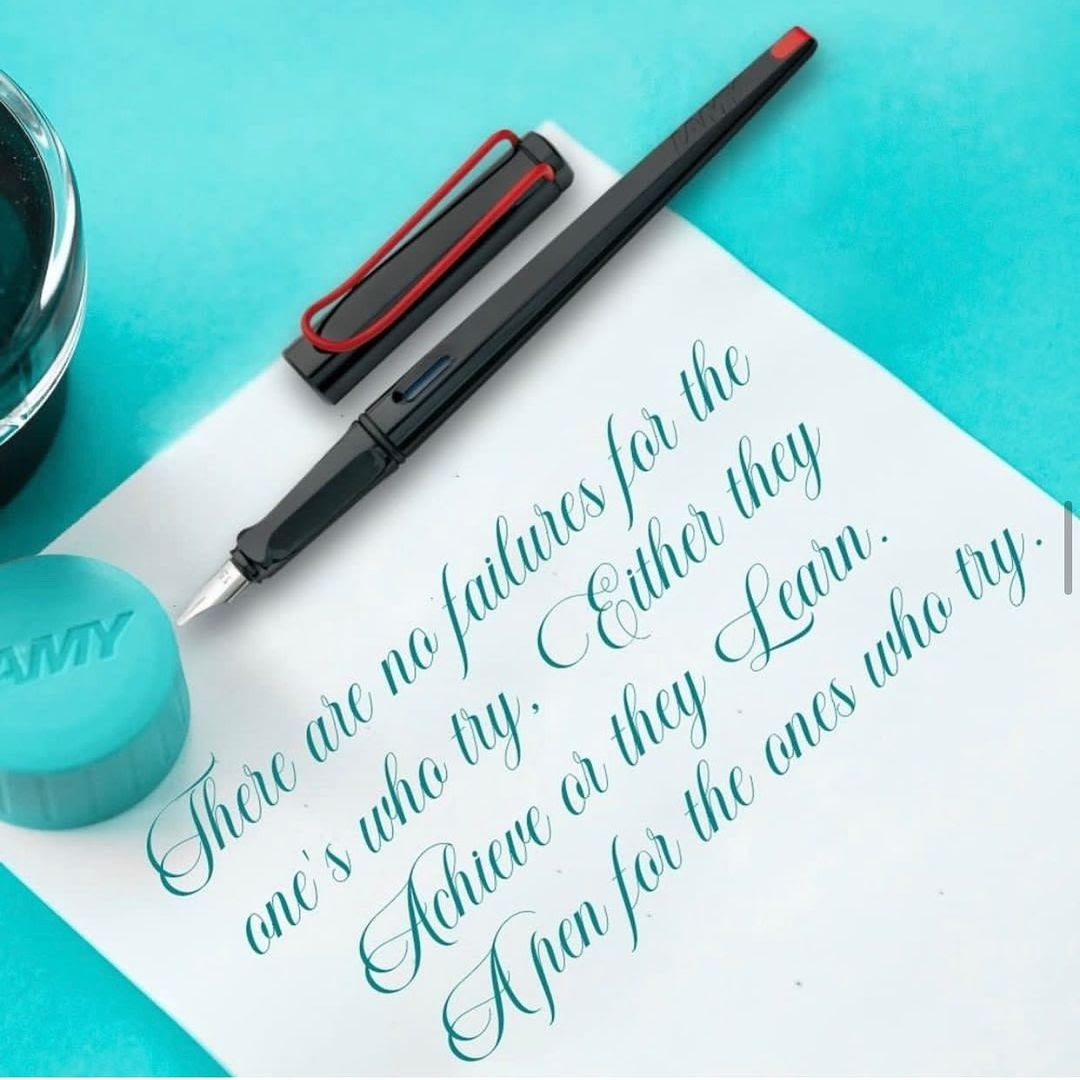 LAMY
AMY
There are no failures for the
one's who try, Either they
Achieve or they Learn.
A pen for the ones who try.